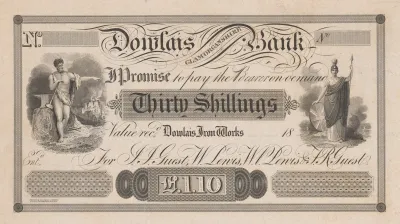 No Dowlais Bank No
GLAMORGANSHIRE
I Promise to pay the Bearer on demand
Thirty Shillings
Value rec.d Dowlais Iron Works 18
Ent.
For J. J. Guest, W. Lewis, W. Lewis & T. R. Guest
£1.10